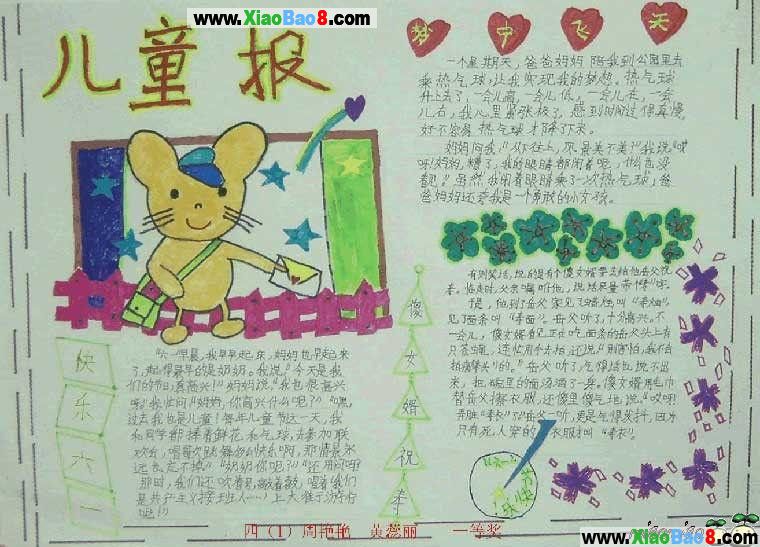 www.XiaoBao8.com
儿童报
梦中飞天
一个星期天,爸爸妈妈陪我到公园里去
乘热气球,让我实现我的梦想。热气球
升上去了,一会儿高,一会儿低,一会儿左,一会
儿右,我心里紧张极了,感到时间过得真慢,
好不容易热气球才降下来。
妈妈问我:“从上往上,风景美不美?”我说:“哎
呀!妈妈,糟了,我的眼睛都闭着呢,什么也没
看见。”虽然我闭着眼睛乘了一次热气球,爸
爸妈妈还夸我是一个勇敢的小女孩。
有则笑话,说的是有个傻女婿要去给他岳父祝
寿。临走时,父亲嘱咐他,说话尽量带“寿”字。
于是,他到了岳父家见了蜡烛叫“寿烛”,
见了面条叫“寿面”。岳父听了,十分高兴。不
一会儿,傻女婿看见正在吃面条的岳父头上有
只苍蝇,
岳父听了气得话也说不出
来,把碗里的面浸洒了一身。傻女婿用毛巾
替岳父擦衣服,还傻里傻气地说:“哎呀!
弄脏“寿衣”了!”岳父一听,更是气得发抖,因为
只有死人穿的衣服叫“寿衣”。
傻女婿祝寿
快乐六一
“六一”早晨,我早早起床,妈妈也早起起来
了,起得最早的是奶奶。我说:“今天是我
们的节日,真高兴!”妈妈说:“我也很高兴
呀!”我忙问:“妈妈,你高兴什么呢?”“嘿,
过去我也是儿童!每年儿童节这一天,我
和同学都捧着鲜花和气球,去参加联
欢会,唱歌欢跳舞
远也忘不掉。”“奶奶你呢?”“还用问呀
那时,我们还吹着号,敲着鼓,唱着我们
是共产主义接班人……上大街
呢!!!”
“六一”节快乐
四(1)周艳艳 黄蕊丽 一等奖
www.XiaoBao8.com